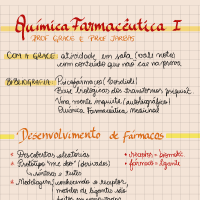 Química Farmacêutica I
PROF GRACE E PROF JARBAS
COM A GRACE: atividade em sala (vale nota)
com conteúdo que não cai na prova
BIBLIOGRAFIA: Psicofármacos (Cordioli)
Base biológicas dos transtornos psiquiát
Uma mente inquieta (autobiográfico)
Química Farmacêutica Medicinal
Desenvolvimento de fármacos
Descobertas aleatórias
Protótipo "me too" (derivados)
síntese e testes
Modelagem: conhecendo o receptor,
modelos de ligantes são
receptor =
fármaco = ligante